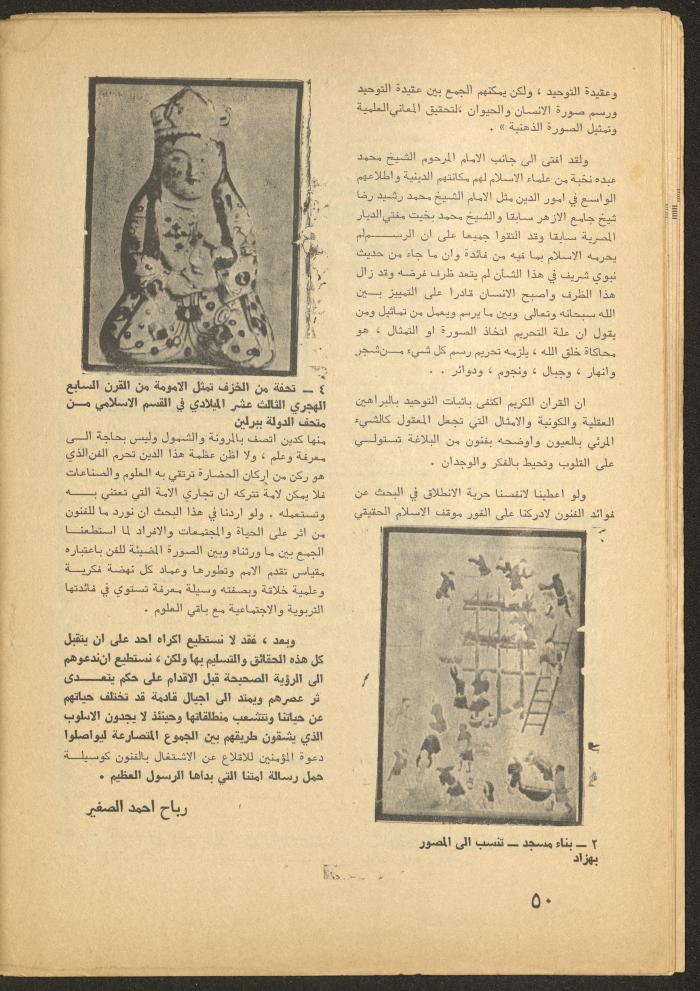 وعقيدة التوحيد ، ولكن يمكنهم الجمع بين عقيدة التوحيد
ورسم صورة الانسان والحيوان ،لتحقيق المعاني العلمية
وتمثيل الصورة الذهنية » .
ولقد افتى الى جانب الامام المرحوم الشيخ محمد
عبده نخبة من علماء الاسلام لهم مكانتهم الدينية واطلاعهم
الواسع في امور الدين مثل الامام الشيخ محمد رشيد رضا
شيخ جامع الازهر سابقا والشيخ محمد بخيت مفتي الديار
المصرية سابقا وقد التقوا جميعا على ان الرسم لم
يحرمه الاسلام بما فيه من فائدة وان ما جاء من حديث
نبوي شريف في هذا الشأن لم يتعد ظرف فرضه وقد زال
هذا الظرف واصبح الانسان قادرا على التمييز بين
الله سبحانه وتعالى وبين ما يرسم ويعمل من تماثيل ومن
يقول ان علة التحريم اتخاذ الصورة او التمثال ، هو
محاكاة خلق الله ، يلزمه تحريم رسم كل شيء من شجر
وانهار ، وجبال ، ونجوم ، ودوائر . .
ان القران الكريم اكتفى باثبات التوحيد بالبراهين
العقلية والكونية والامثال التي تجعل المعقول كالشيء
المرئي بالعيون واوضحه بفنون من البلاغة تستولي
على القلوب وتحيط بالفكر والوجدان .
ولو اعطينا لانفسنا حرية الانطلاق في البحث عن
فوائد الفنون لادركنا على الفور موقف الاسلام الحقيقي
٢ — بناء مسجد — تنسب الى المصور
بهزاد
٤ — تحفة من الخزف تمثل الامومة من القرن السابع
الهجري الثالث عشر الميلادي في القسم الاسلامي من
متحف الدولة ببرلين
منها كدين اتصف بالمرونة والشمول وليس بحاجة الى
معرفة وعلم ، ولا اظن عظمة هذا الدين تحرم الفن الذي
هو ركن من اركان الحضارة ترتقي به العلوم والصناعات
فلا يمكن لامة تتركه ان تجاري الامة التي تعتني به
وتستعمله . ولو اردنا في هذا البحث ان نورد ما للفنون
من اثر على الحياة والمجتمعات والافراد لما استطعنا
الجمع بين ما ورثناه وبين الصورة المضيئة للفن باعتباره
مقياس تقدم الامم وتطورها وعماد كل نهضة فكرية
وعلمية خلاقة وبصفته وسيلة معرفة تستوي في فائدتها
التربوية والاجتماعية مع باقي العلوم .
وبعد ، فقد لا نستطيع اكراه احد على ان يتقبل
كل هذه الحقائق والتسليم بها ولكن ، نستطيع ان ندعوهم
الى الرؤية الصحيحة قبل الاقدام على حكم يتعدى
ثر عصرهم ويمتد الى اجيال قادمة قد تختلف حياتهم
عن حياتنا وتتشعب منطلقاتها وحينئذ لا يجدون الاسلوب
الذي يشقون طريقهم بين الجموع المتصارعة ليواصلوا
دعوة المؤمنين للاقلاع عن الاشتغال بالفنون كوسيلة
حمل رسالة امتنا التي بداها الرسول العظيم .
رباح احمد الصغير
٥٠